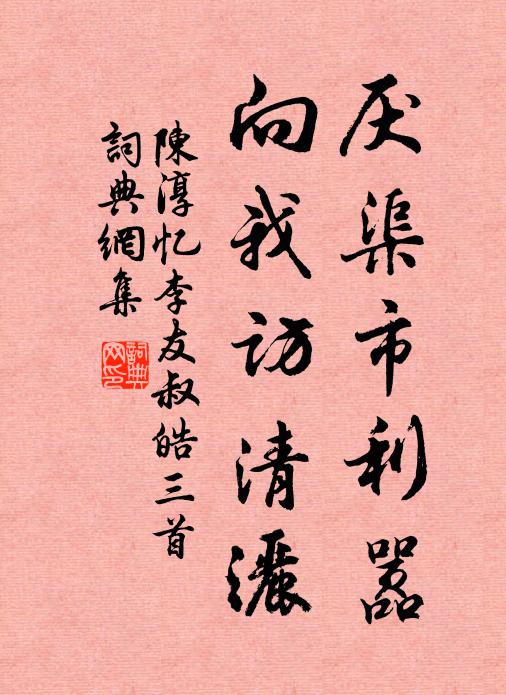 厌渠市利嚣
向我访清灑
陳淳忆李友叔皓三首
詞典網集
詞典网印